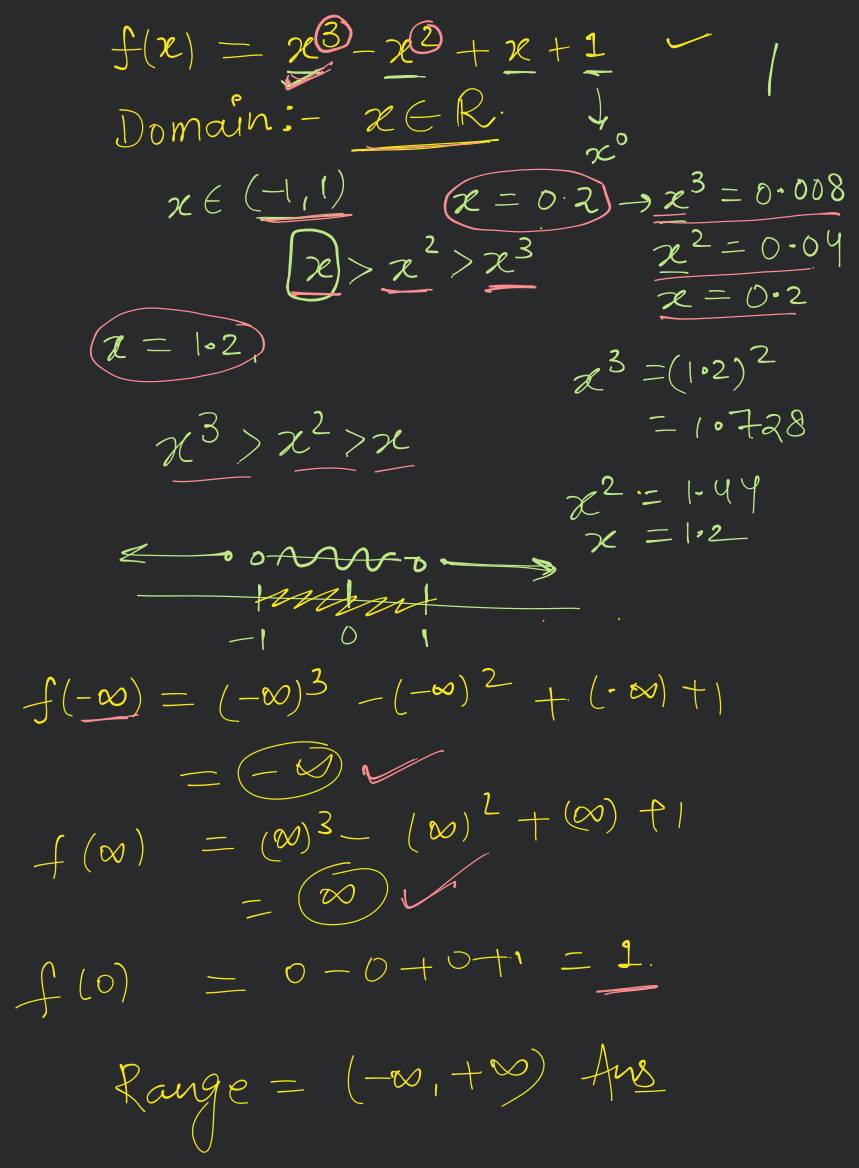 f(x) = x³ - x² + x + 1
Domain:- x ∈ R.
x⁰
x ∈ (-1, 1)
x = 0.2 → x³ = 0.008
x > x² > x³
x² = 0.04
x = 0.2
x = 1.2
x³ = (1.2)²
= 1.728
x³ > x² > x
x² = 1.44
x = 1.2
-1 0 1
f(-∞) = (-∞)³ - (-∞)² + (-∞) + 1
= -∞
f(∞) = (∞)³ - (∞)² + (∞) + 1
= ∞
f(0) = 0 - 0 + 0 + 1 = 1.
Range = (-∞, +∞) Ans